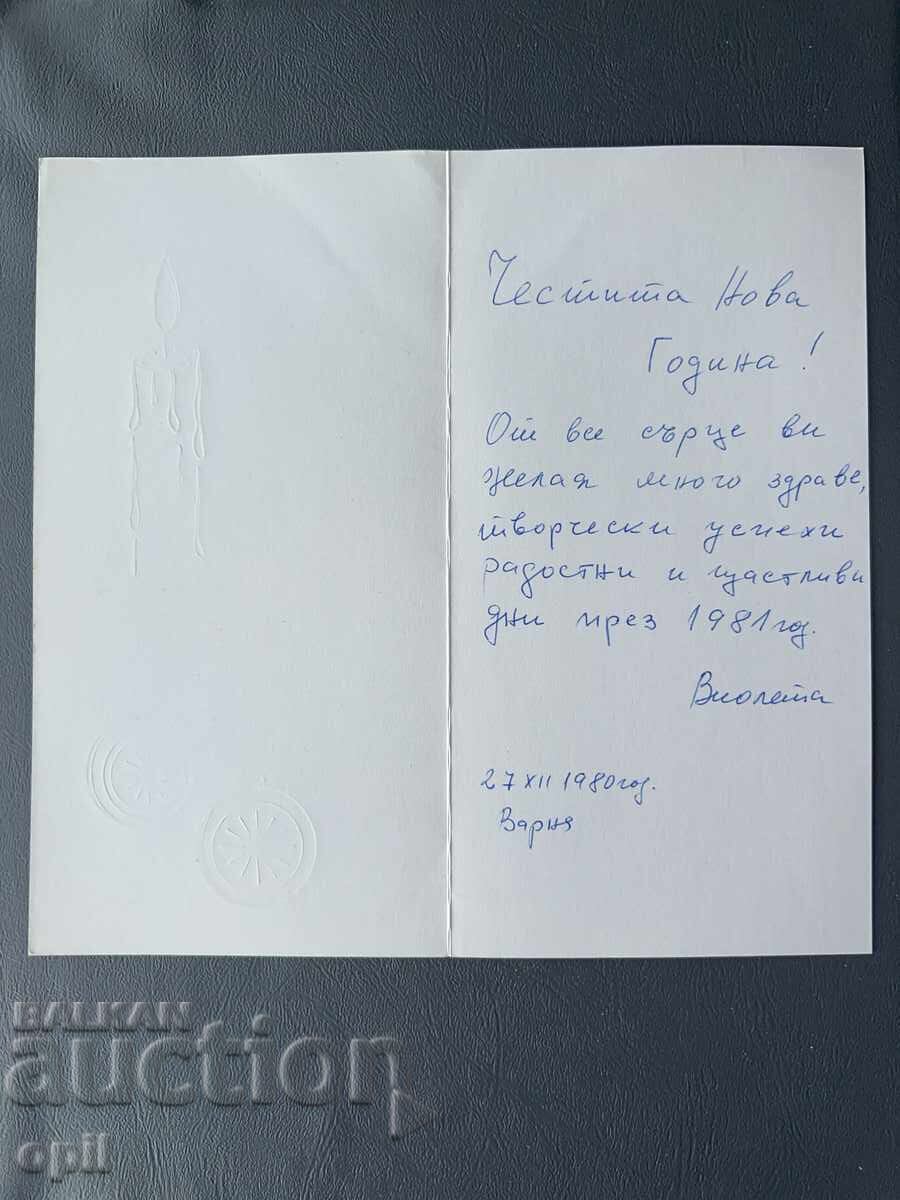 Честита Нова
Година!
От все сърце ви
желая много здраве,
творчески успехи
радостни и щастливи
дни през 1981 год.
Виолета
27 XII 1980 год.
Варна
BALKAN
auction
opil